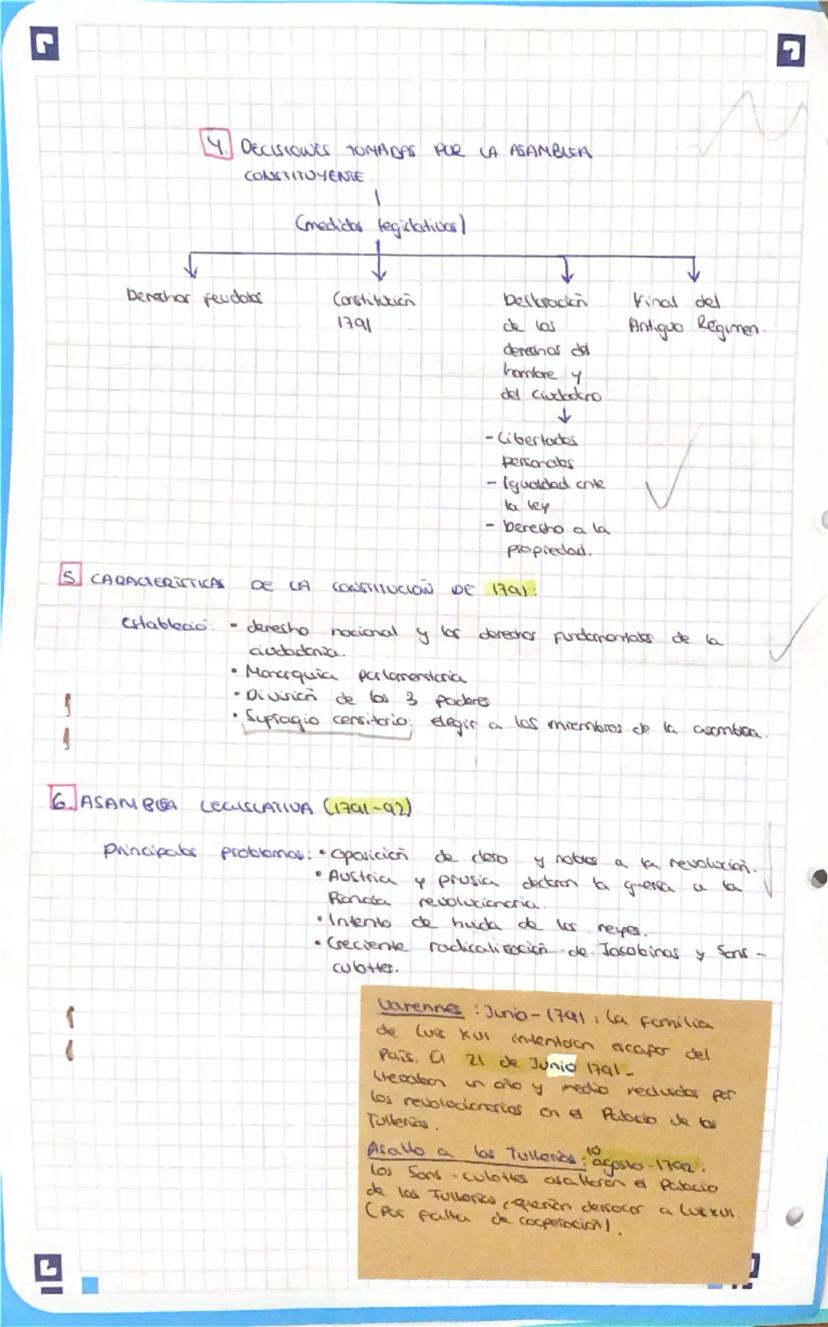 4. DECISIONES TOMADAS POR LA ASAMBLEA
CONSTITUYENTE
(medidas legislativas)
Derechos feudales
Constitución
1791
Declaración
de los
derechos del
hombre y
del ciudadano
- Libertades
personales
- Igualdad ante
la ley
- Derecho a la
propiedad.
Final del
Antiguo Régimen.
5. CARACTERÍSTICAS DE LA CONSTITUCIÓN DE 1791:
Estableció: • derecho nacional y los derechos fundamentales de la
ciudadanía.
• Monarquía parlamentaria
• División de los 3 poderes
• Sufragio censitario: elegir a los miembros de la asamblea.
6. ASAMBLEA LEGISLATIVA (1791-92)
Principales problemas: • Oposición de clero y nobles a la revolución.
• Austria y prusia declaran la guerra a la
Francia revolucionaria.
• Intento de huida de los reyes.
• Creciente radicalización de Jacobinos y Sans-
culottes.
Varennes: Junio-1791: La familia
de Luis XVI intentan escapar del
País. El 21 de Junio 1791-
Llevaban un año y medio recluidos por
los revolucionarios en el Palacio de las
Tullerías.
Asalto a las Tullerías: 10 agosto-1792:
Los Sans-culottes asaltaron el Palacio
de las Tullerías, querían derrocar a Luis XVI.
(Por falta de cooperación).